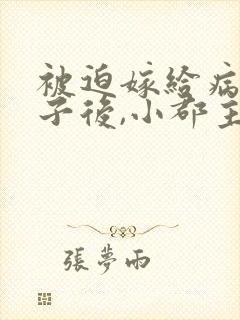 被迫嫁給病
子後,小郡主
張夢雨